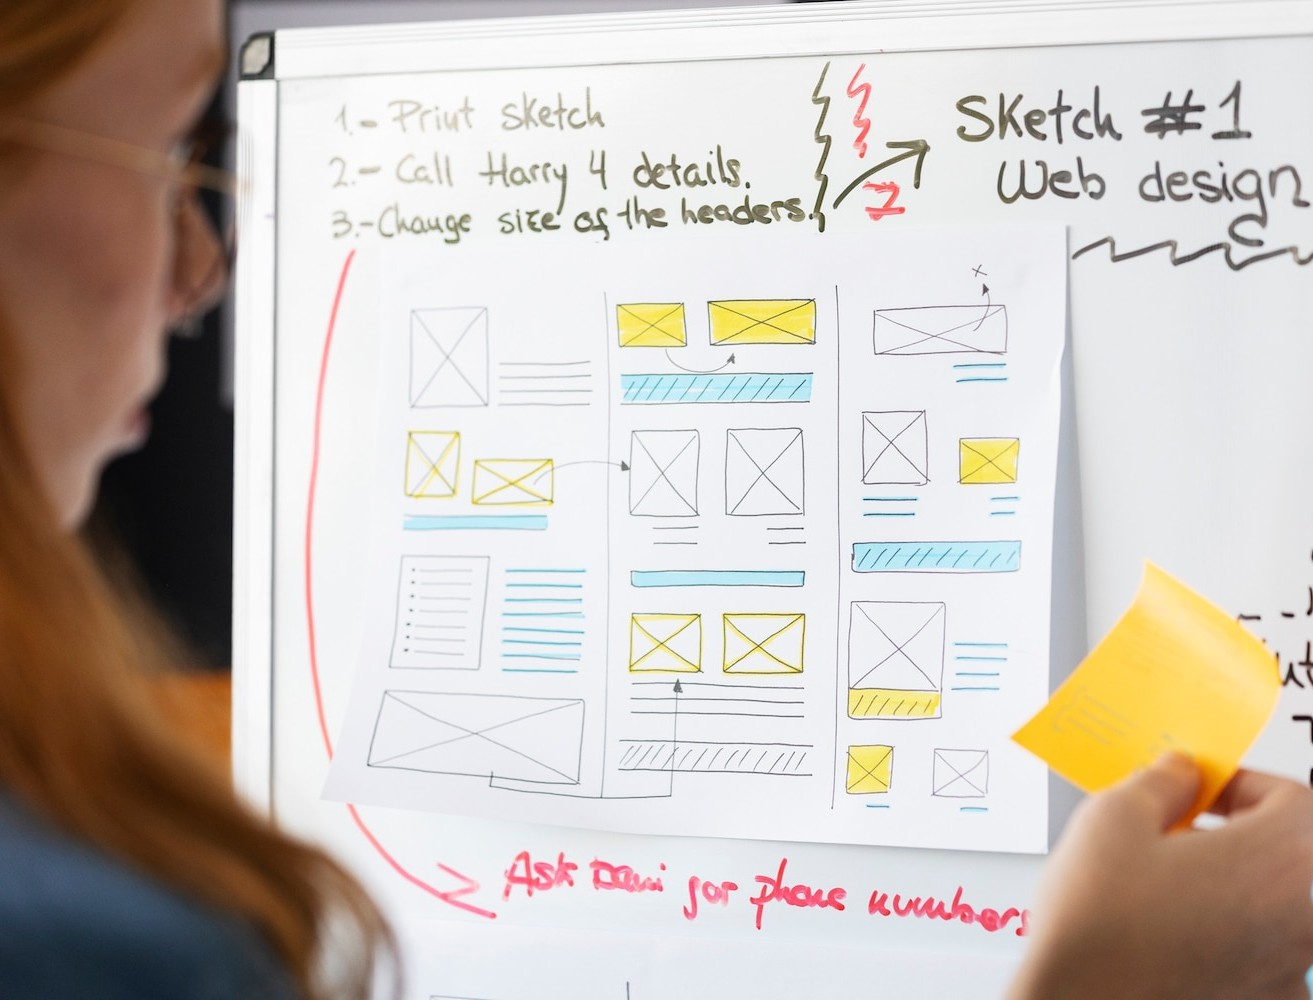 1.- Print sketch
2.- Call Harry 4 details.
3.- Change size of the headers.
Sketch #1
Web design
Ask Dani for phone numbers